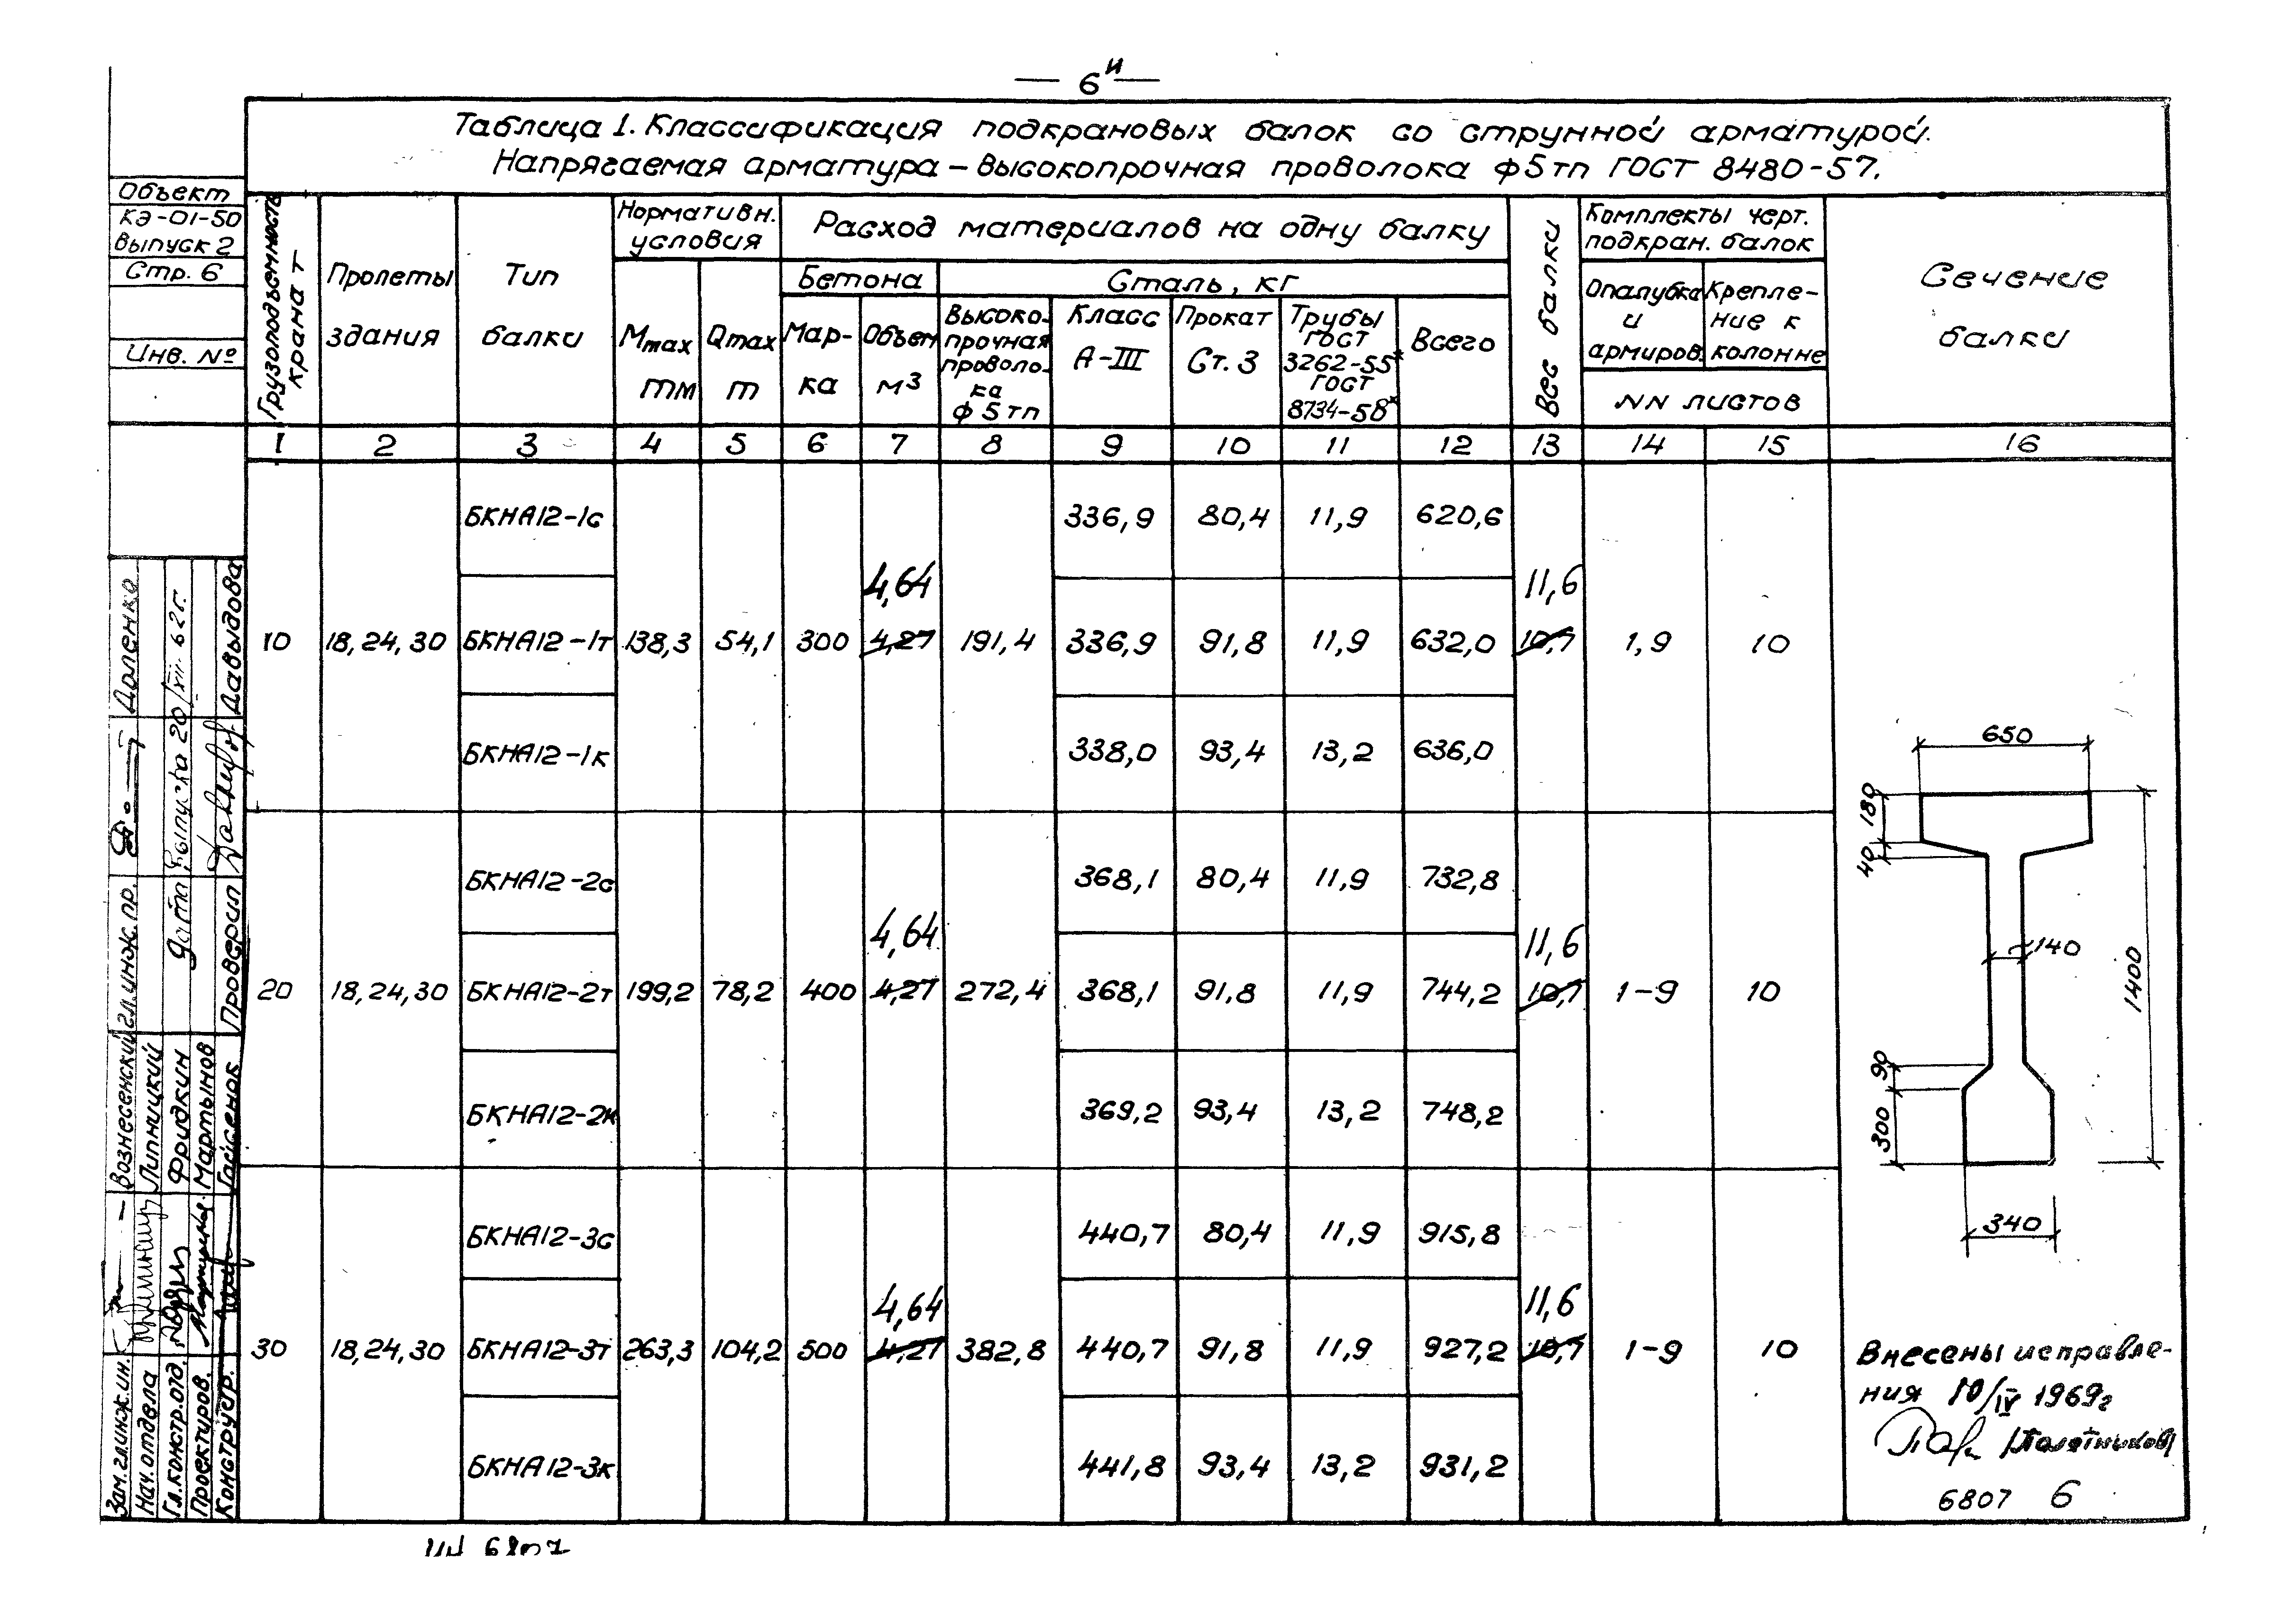 — 6и —
Таблица 1. Классификация подкрановых балок со струнной арматурой.
Напрягаемая арматура – высокопрочная проволока ф5тп ГОСТ 8480-57.
Объект
КЭ-01-50
выпуск 2
Стр. 6
Инв. №
Грузоподъемность крана т
Пролеты здания
Тип балки
Нормативн. условия
Mmax тм
Qmax т
Расход материалов на одну балку
Бетона
Мар-
ка
Объем м3
Сталь, кг
Высоко-
прочная
проволо-
ка
ф 5 тп
Класс А-III
Прокат Ст. 3
Трубы
ГОСТ
3262-55*
ГОСТ
8734-58*
Всего
Вес балки
Комплекты черт.
подкран. балок
Опалубка и армиров.
Крепле-
ние к
колонне
NN листов
Сечение балки
1 2 3 4 5 6 7 8 9 10 11 12 13 14 15 16
БКНА12-1с 336,9 80,4 11,9 620,6
4,64 11,6
10 18,24,30 БКНА12-1т 138,3 54,1 300 4,27 191,4 336,9 91,8 11,9 632,0 10,7 1,9 10
БКНА12-1к 338,0 93,4 13,2 636,0
БКНА12-2с 368,1 80,4 11,9 732,8
4,64 11,6
20 18,24,30 БКНА12-2т 199,2 78,2 400 4,27 272,4 368,1 91,8 11,9 744,2 10,7 1-9 10
БКНА12-2к 369,2 93,4 13,2 748,2
БКНА12-3с 440,7 80,4 11,9 915,8
4,64 11,6
30 18,24,30 БКНА12-3т 263,3 104,2 500 4,27 382,8 440,7 91,8 11,9 927,2 10,7 1-9 10
БКНА12-3к 441,8 93,4 13,2 931,2
650
180
40
140
1400
90
300
340
Внесены исправле-
ния 10/IV 1969г
6807 6
Зам. гл. инж. ин. Вознесенский гл. инж. пр. Доленко
Нач. отдела Липницкий
Гл. констр. отд. Фридкин дата выпуска 20/XII 62г.
Проектиров. Мартынов
Конструир. Гайсенок Проверил Давыдова
6807